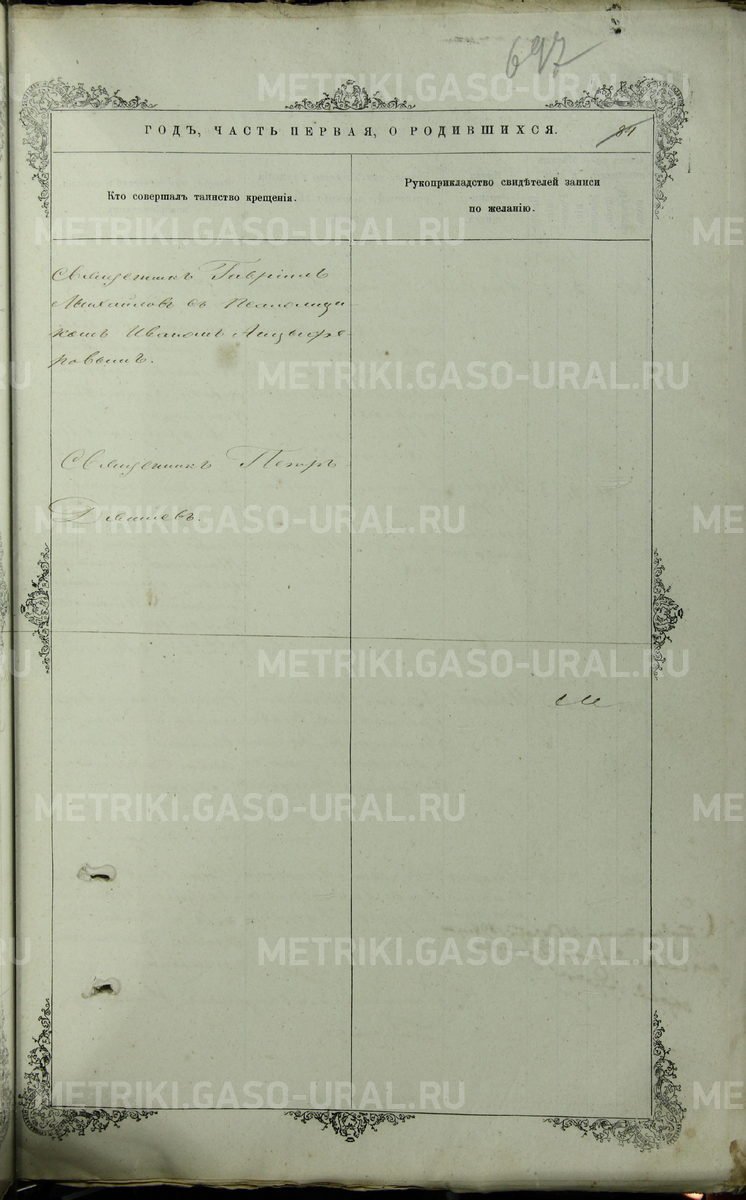 697
ГОДЪ, ЧАСТЬ ПЕРВАЯ, О РОДИВШИХСЯ.
81
Кто совершалъ таинство крещенія.
Рукоприкладство свидѣтелей записи
по желанію.
Священникъ Гавріилъ
Михайловъ съ Псаломщи
комъ Иваномъ Анцыфе-
ровымъ.
Священникъ Петръ
METRIKI.GASO-URAL.RU